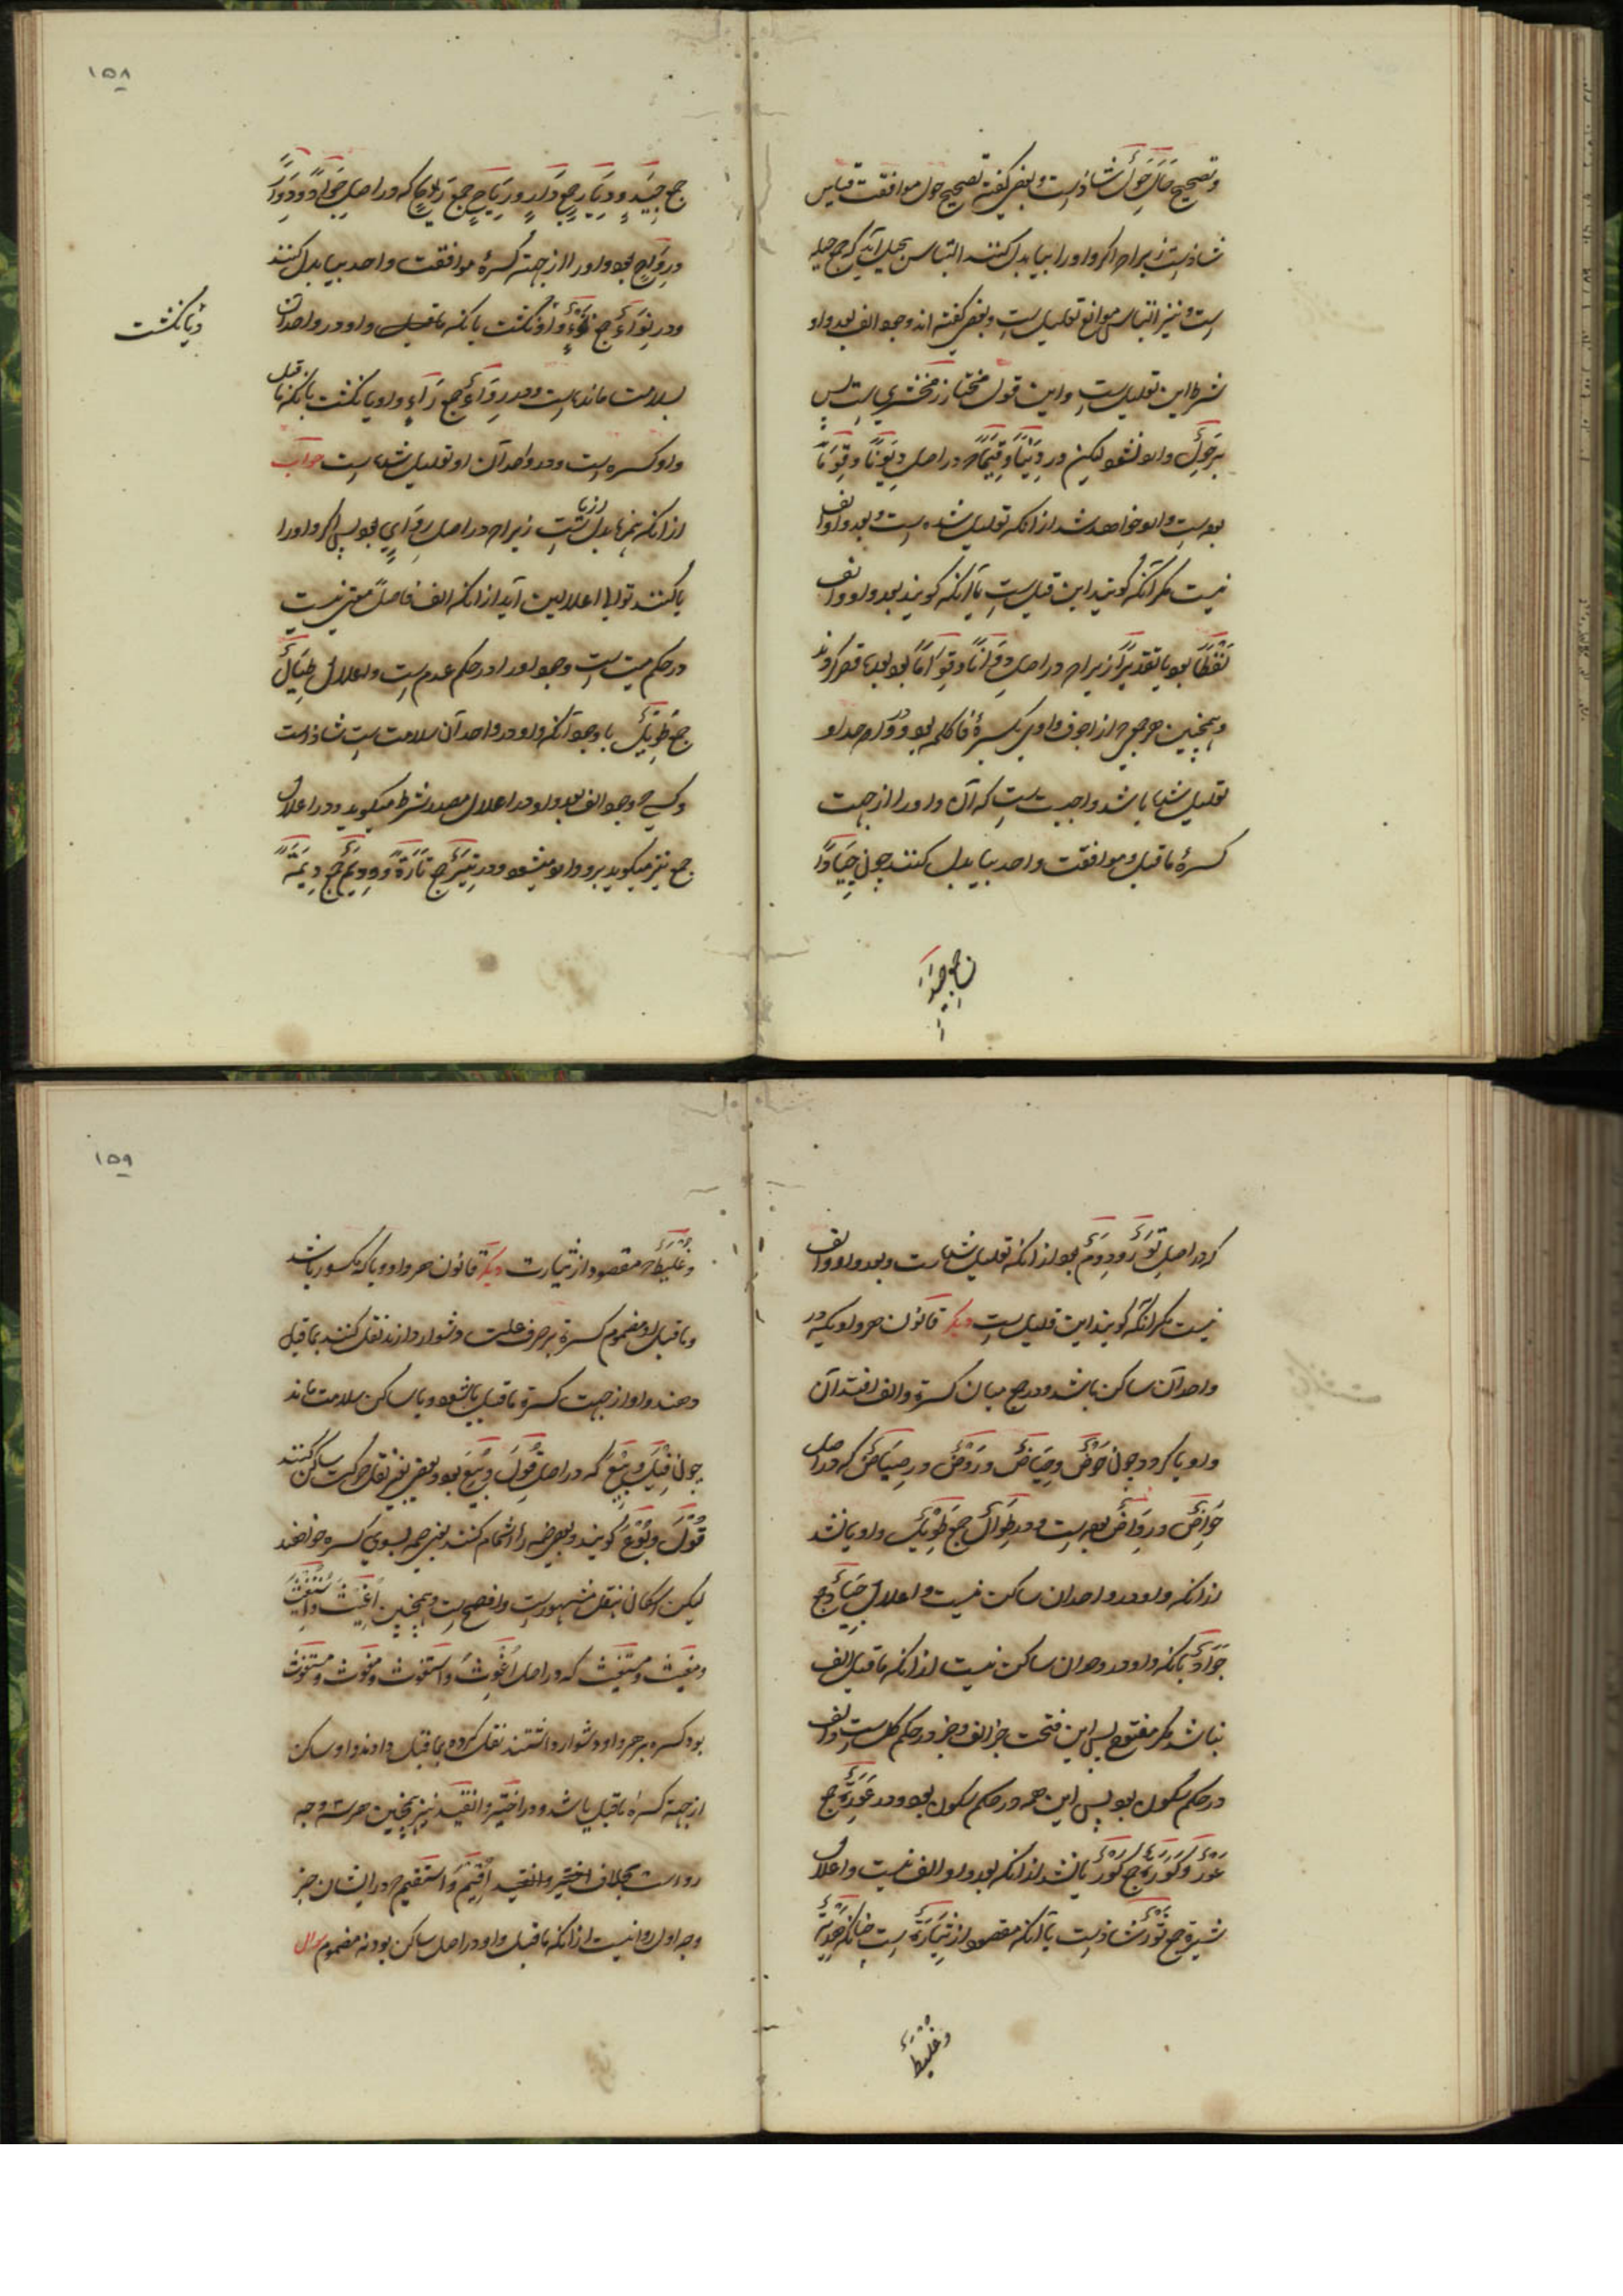 وتصحیح حال حِوَلٌ شاذست و بعضی گفته تصحیح حول موافقت قیاس
شاذست زیراچه اگر واو را بیا بدل کنند التباس بحیل آید که جمع حیله
است و نیز التباس موانع تعلیل است و بعضی گفته اند وجود الف بعد واو
شرط این تعلیل است و این قول مختار زمخشری است پس
بر حِوَلٌ وارد نشود لیکن در دِیَنًا و قِیَمًا که در اصل دِوَنًا و قِوَمًا
بوده است وارد خواهد شد از آنکه تعلیل شده است و بعد واو الف
نیست مگر آنکه گویند این قلیل است یا آنکه گویند بعد واو الف
لفظًا بود یا تقدیرًا زیراچه در اصل دِوَانًا و قِوَامًا بود بعده قصر کردند
و همچنین هر جمعی که از اجوف واوی بکسرهٔ فا کلمه بود و در واحد او
تعلیل شده باشد واجب است که آن واو را از جهت
کسرهٔ ماقبل و موافقت واحد بیا بدل کنند چون جِیَادًا
جمع جید
۱۵۸
جمع جَیِّدٍ و دِیَارٍ جمع دَارٍ و رِیَاحٍ جمع رِیْحٍ که در اصل جِوَادًا و دِوَارًا
و رِوَاحٍ بود واو را از جهت کسرهٔ موافقت واحد بیا بدل کنند
و در نِوَاءٌ جمع نَوْءٌ واو نگشت با آنکه ماقبل واو در واحد آن
و یا نگشت
بسلامت مانده است و در رِوَاءٌ جمع رَاءٍ واو یا نگشت با آنکه ماقبل
واو کسره است و در واحد آن او تعلیل شده است جواب
از آنکه همزه بدل از یا ست زیراچه در اصل رِوَايٌ بود پس اگر واو را
یا کنند توالی اعلالین آید از آنکه الف فاصل معتبر نیست
در حکم میت است وجود او را در حکم عدم است و اعلال طِیَالٌ
جمع طَوِیْلٌ با وجود آنکه واو در واحد آن سلامت است شاذ است
و کسی که وجود الف بعد واو در اعلال مصدر شرط میگوید و در اعلال
جمع نیز میگوید برو وارد میشود در تِیَرٌ جمع تَارَةً و دِیَمٌ جمع دِیْمَةً
که در اصل تِوَرٌ و دِوَمٌ بود از آنکه تعلیل شده است و بعد واو الف
نیست مگر آنکه گویند این قلیل است دیگر قانون هر واو یکه در
واحد آن ساکن باشد و در جمع میان کسره و الف افتد آن
واو یا گردد چون حَوْضٌ و حِیَاضٌ و رَوْضٌ و رِیَاضٌ که در اصل
حِوَاضٌ و رِوَاضٌ بوده است و در طِوَالٌ جمع طَوِیْلٌ واو یا نشد
از آنکه واو در واحد آن ساکن نیست و اعلال جِیَادٌ جمع
جَوَادٌ با آنکه واو در واحد آن ساکن نیست از آنکه ماقبل الف
نباشد مگر مفتوح پس این فتحت جز الف و جز در حکم کل است و الف
در حکم سکون بود پس این همه در حکم سکون بود و در عِوَدَةٌ جمع
عَوْدٌ و کِوَزَةٌ جمع کُوْزٌ یا نشد از آنکه بعد واو الف نیست و اعلال
ثِیَرَةٌ جمع ثَوْرٌ شاذست یا آنکه مقصور از ثِیَارَةٌ است چنانکه هُدَبِدٌ
وعُلَبِطٌ
۱۵۹
وعُلَبِطٌ که مقصور از ثیارت دیگر قانون هر واو و یا که مکسور باشد
و ماقبل او مضموم کسره بر حرف علت دشوار دارند نقل کنند بماقبل
دهند واو از جهت کسرهٔ ماقبل یا شود و یا ساکن سلامت ماند
چون قِیْلَ و بِیْعَ که در اصل قُوِلَ و بُیِعَ بود و بعضی بغیر نقل حرکت ساکن کنند
قُوْلَ و بُوْعَ گویند و بعضی ضمه را اشمام کنند یعنی ضمه بسوی کسره خوانند
لیکن اسکان بنقل مشهور است و افصح است و همچنین اُغِیْثَ و اُسْتُغِیْثَ
و مغیث و مستغیث که در اصل اُغْوِثَ و استغوث و مغوث و مستغوث
بود کسره بر حرف واو دشوار داشتند نقل کرده بماقبل دادند واو ساکن
از جهت کسرهٔ ماقبل یا شد و در اختیر و انقید نیز همچنین هر سه وجه
رواست بخلاف اختیر و انقید اُقِیْمَ و استقیم که در ایشان جز
وجه اول روا نیست از آنکه ماقبل واو در اصل ساکن بود نه مضموم سوال